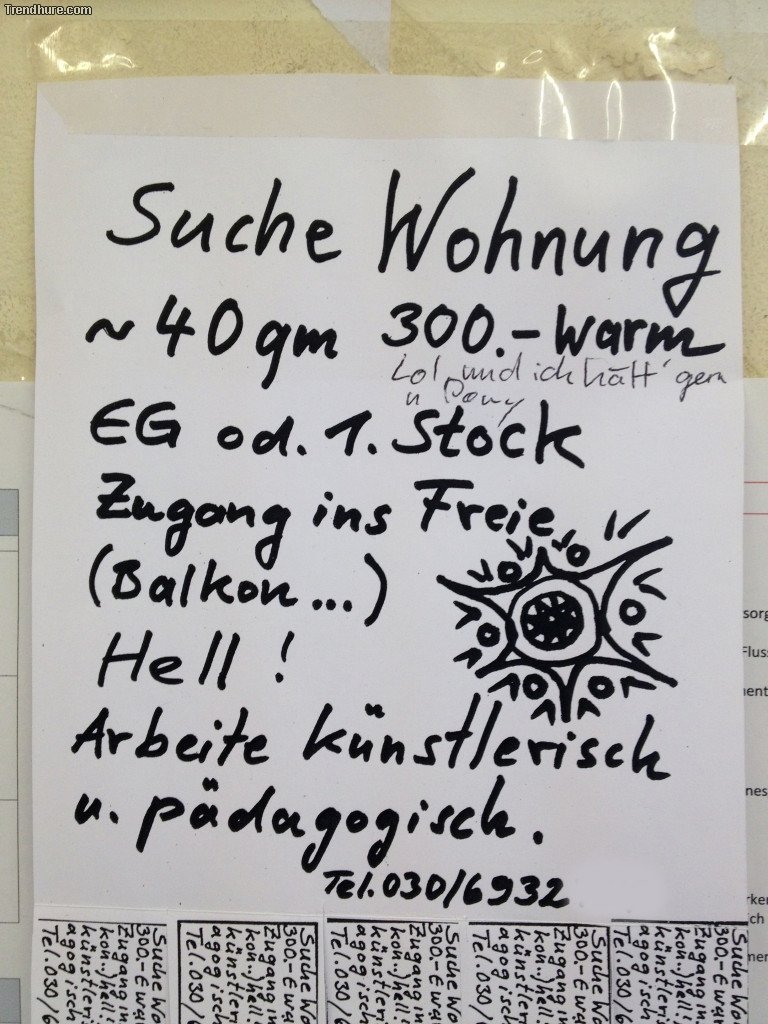 Trendhure.com
Suche Wohnung
~ 40 qm 300.- warm
Lol, und ich hätt' gern
n Pony
EG od. 1. Stock
Zugang ins Freie
(Balkon...)
Hell!
Arbeite künstlerisch
u. pädagogisch.
Tel. 030/6932
Suche Wo
300.-E wa
Zugang in
kon..)hell!
künstleri
agogisch
Tel.030/6
Suche Wo
300.-E wa
Zugang in
kon..)hell!
künstler
agogis
Tel.030/
Suche Wo
300.-E war
Zugang in
kon..)hell!
künstleri
agogisch
Tel.030/6
Suche Wo
300.-E wa
Zugang in
kon..)hell!
künstleri
agogisch
Tel.030/6
Suche Wo
300.-E wa
Zugang in
kon..)hell!
künstleri
agogisch
Tel.030/6
sorg
Flus
ment
nes
rker
ich
mer